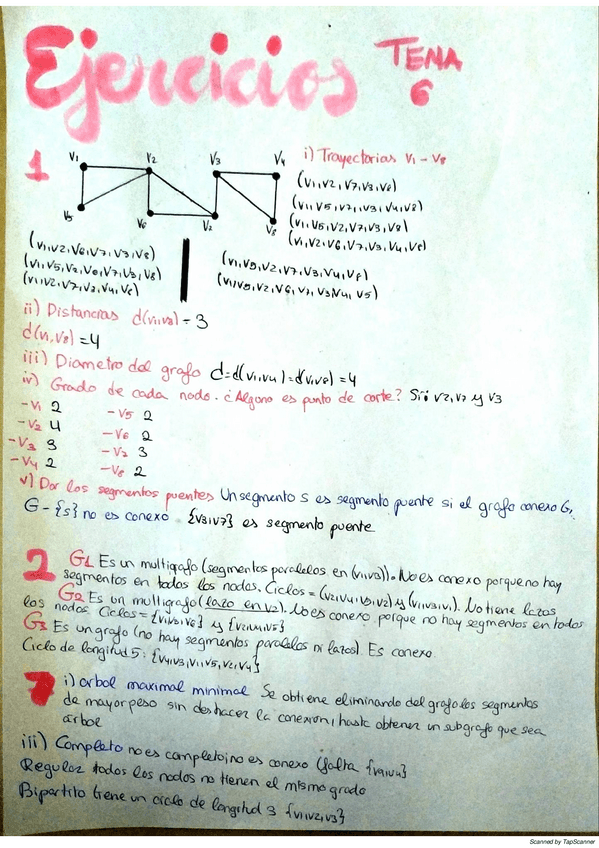 Ejercicios TEMA 6
1
V1 V2 V3 V4
V5 V6 V2 V8
i) Trayectorias V1 - V8
(V1, V2, V7, V3, V8)
(V1, V5, V2, V7, V3, V4, V8)
(V1, V5, V2, V7, V3, V8)
(V1, V2, V6, V7, V3, V4, V8)
(V1, V2, V6, V7, V3, V8)
(V1, V5, V2, V6, V7, V3, V8)
(V1, V2, V7, V3, V4, V8)
(V1, V5, V2, V7, V3, V4, V8)
(V1, V5, V2, V6, V7, V3, V4, V5)
ii) Distancias d(V1, V3) = 3
d(V1, V8) = 4
iii) Diametro del grafo d = d(V1, V4) = d(V1, V8) = 4
iv) Grado de cada nodo. ¿Alguno es punto de corte? Sí: V2, V7 y V3
- V1 2 - V5 2
- V2 4 - V6 2
- V3 3 - V7 3
- V4 2 - V8 2
v) Dar los segmentos puentes Un segmento s es segmento puente si el grafo conexo G,
G - {s} no es conexo {V3, V7} es segmento puente
2 G1 Es un multigrafo (segmentos paralelos en (V1, V3)). No es conexo porque no hay
segmentos en todos los nodos. Ciclos = (V2, V4, V5, V2) y (V1, V3, V1). No tiene lazos
G2 Es un multigrafo (lazo en V2). No es conexo porque no hay segmentos en todos
los nodos Ciclos = {V1, V3, V6} y {V2, V4, V5}
G3 Es un grafo (no hay segmentos paralelos ni lazos). Es conexo.
Ciclo de longitud 5: {V4, V3, V1, V5, V2, V4}
7 i) arbol maximal minimal Se obtiene eliminando del grafo los segmentos
de mayor peso sin deshacer la conexion, hasta obtener un subgrafo que sea
árbol
iii) Completo no es completo, no es conexo (falta {V1, V4}
Regular todos los nodos no tienen el mismo grado
Bipartito tiene un ciclo de longitud 3 {V1, V2, V3}
Scanned by TapScanner